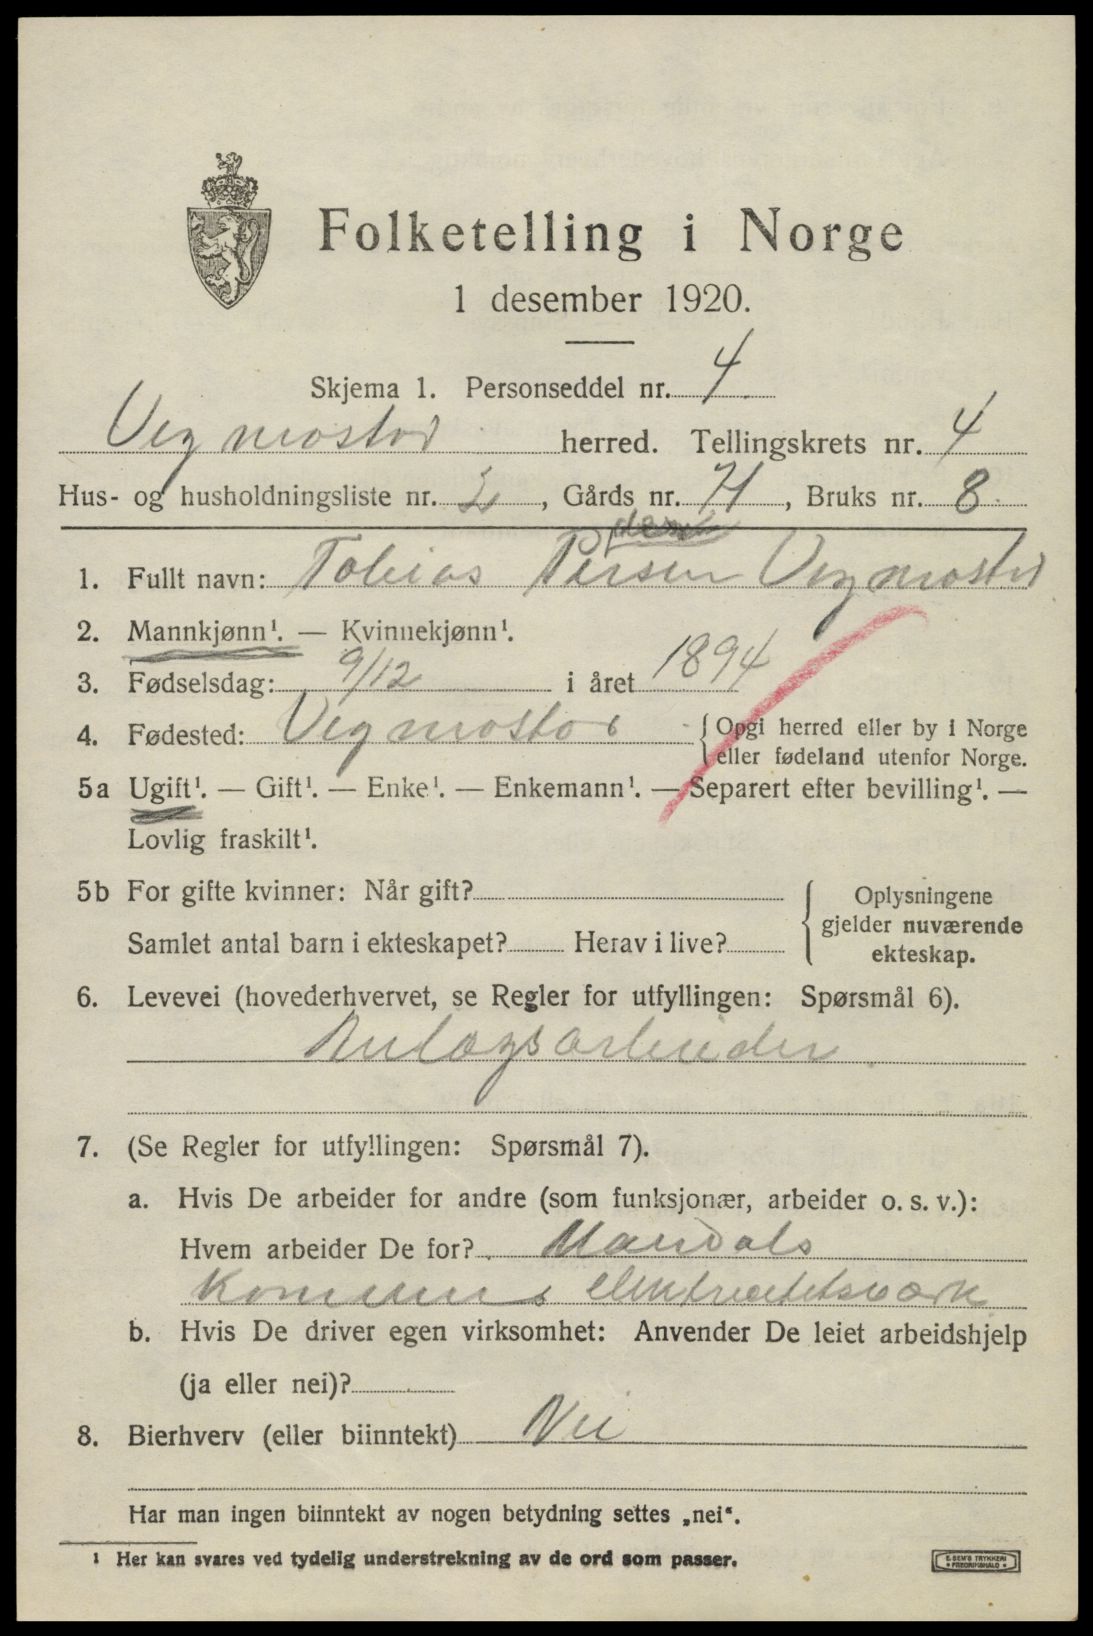 Folketelling i Norge
1 desember 1920.
Skjema 1. Personseddel nr. 4
Vegmostad herred. Tellingskrets nr. 4
Hus- og husholdningsliste nr. 2, Gårds nr. 71, Bruks nr. 8
1. Fullt navn: Tobias Persen Vegmostad
2. Mannkjønn¹. — Kvinnekjønn¹.
3. Fødselsdag: 9/12 i året 1894
4. Fødested: Vegmostad {Opgi herred eller by i Norge
eller fødeland utenfor Norge.
5a Ugift¹. — Gift¹. — Enke¹. — Enkemann¹. — Separert efter bevilling¹. —
Lovlig fraskilt¹.
5b For gifte kvinner: Når gift?
Samlet antal barn i ekteskapet? Herav i live?
{Oplysningene
gjelder nuværende
ekteskap.
6. Levevei (hovederhvervet, se Regler for utfyllingen: Spørsmål 6).
Anlægsarbeider
7. (Se Regler for utfyllingen: Spørsmål 7).
a. Hvis De arbeider for andre (som funksjonær, arbeider o. s. v.):
Hvem arbeider De for? Mandals
Komuns elektrecitetsværk
b. Hvis De driver egen virksomhet: Anvender De leiet arbeidshjelp
(ja eller nei)?
8. Bierhverv (eller biinntekt) Nei
Har man ingen biinntekt av nogen betydning settes „nei“.
¹ Her kan svares ved tydelig understrekning av de ord som passer.
E. SEM'S TRYKKERI
FREDRIKSHALD